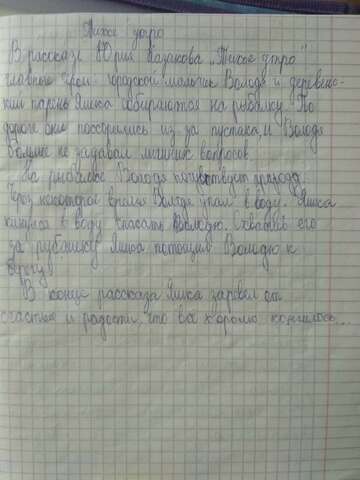 Тихое утро
В рассказе Юрия Казакова "Тихое утро"
главные герои городской мальчик Володя и деревенс-
кий парень Яшка собираются на рыбалку. По
дороге они поссорились из за пустяка, и Володя
больше не задавал лишних вопросов.
На рыбалке Володя почувствует природу.
Через некоторое время Володя упал в воду. Яшка
кинулся в воду спасать Володю. Схватив его
за рубашку Яшка потащил Володю к
берегу.
В конце рассказа Яшка заревел от
счастья и радости, что всё хорошо кончилось...